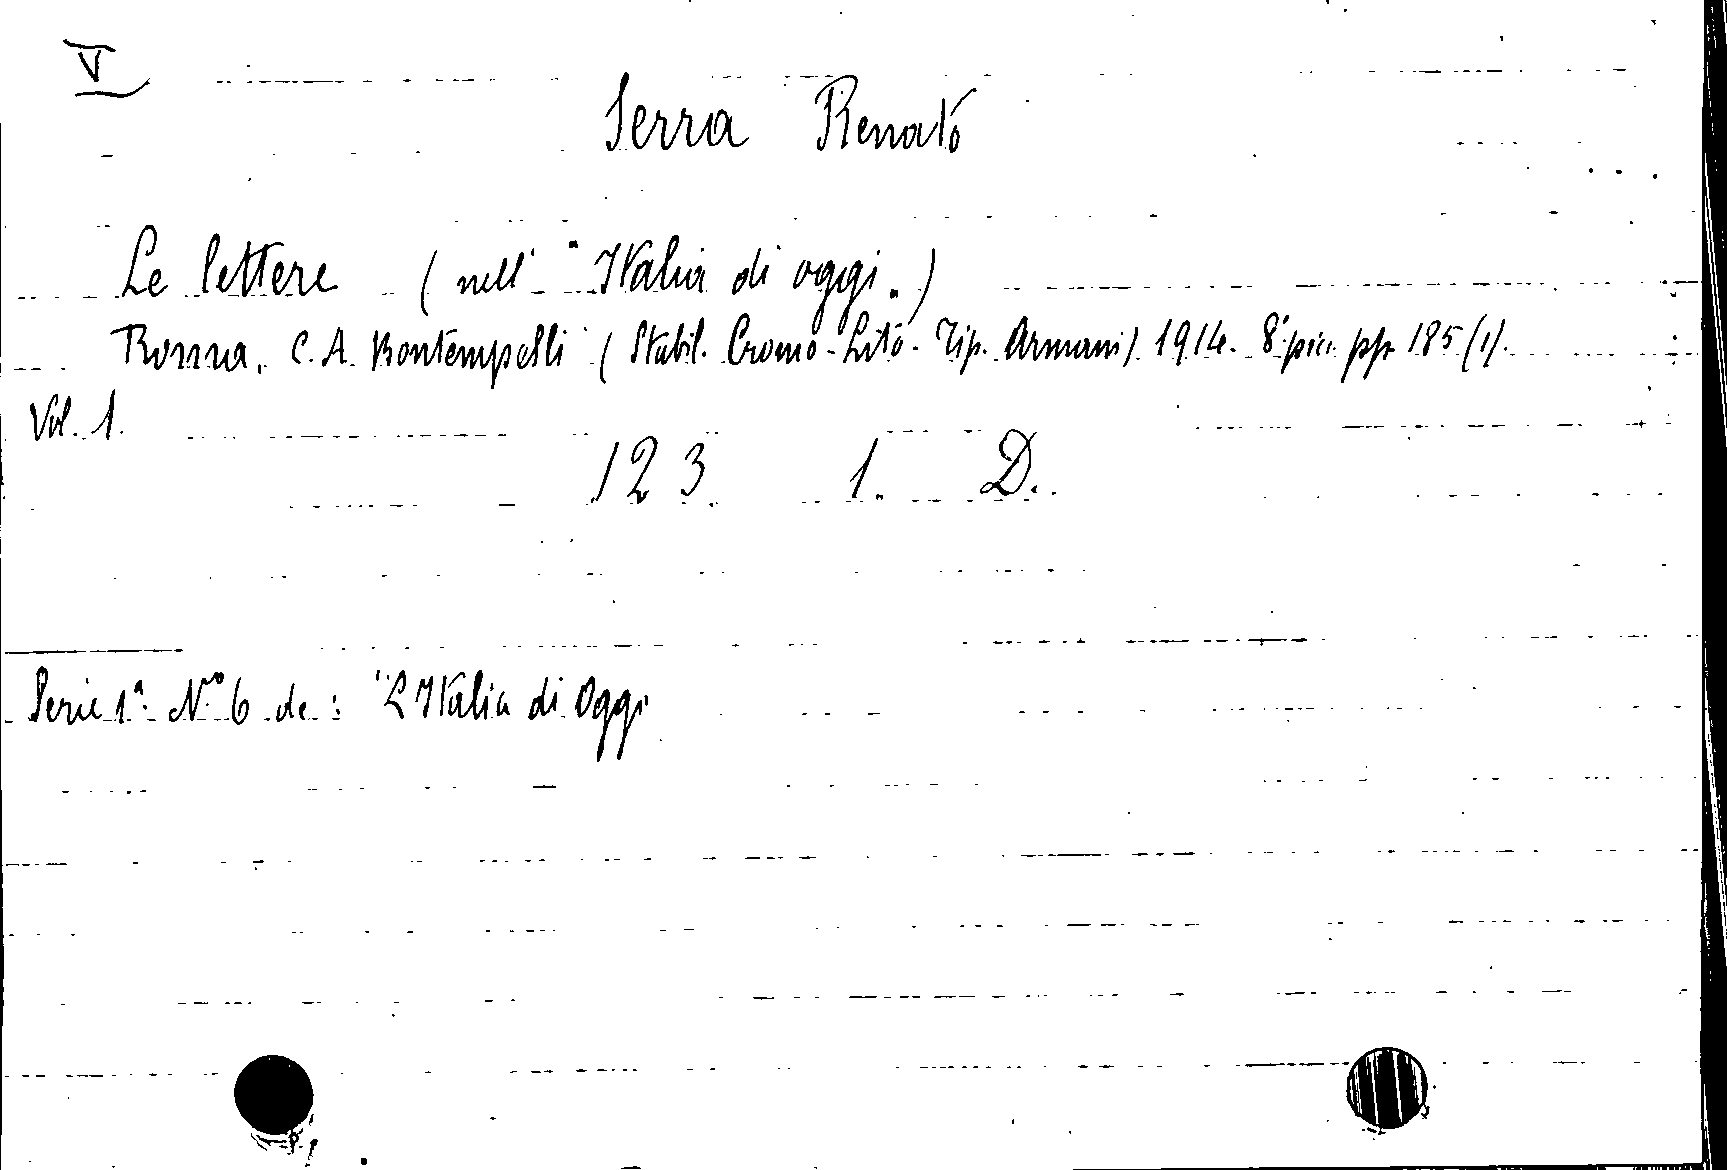 V
Serra Renato
Le lettere (nell' "Italia di oggi.)
Roma. C. A. Bontempelli (Stabil. Cromo-Lito-Tip. Armani) 1914. 8° picc. pp. 185 (1).
Vol. 1.
123. 1. D.
Serie 1ª N° 6 de: "L'Italia di Oggi